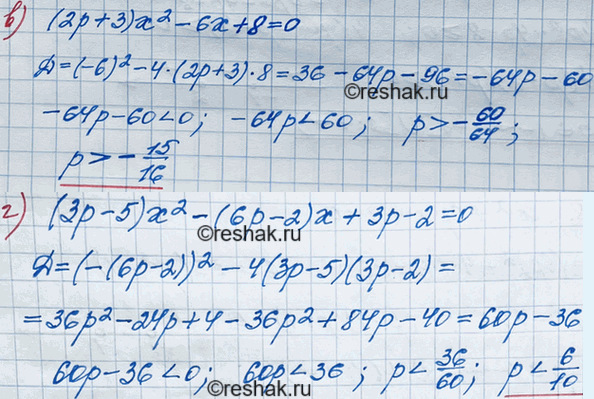 в) (2p+3)x² - 6x + 8 = 0
Д = (-6)² - 4·(2p+3)·8 = 36 - 64p - 96 = -64p - 60
©reshak.ru
-64p - 60 < 0; -64p < 60; p > -60/64;
p > -15/16
г) (3p-5)x² - (6p-2)x + 3p - 2 = 0
©reshak.ru
Д = (-(6p-2))² - 4(3p-5)(3p-2) =
= 36p² - 24p + 4 - 36p² + 84p - 40 = 60p - 36
60p - 36 < 0; 60p < 36; p < 36/60; p < 6/10
©reshak.ru